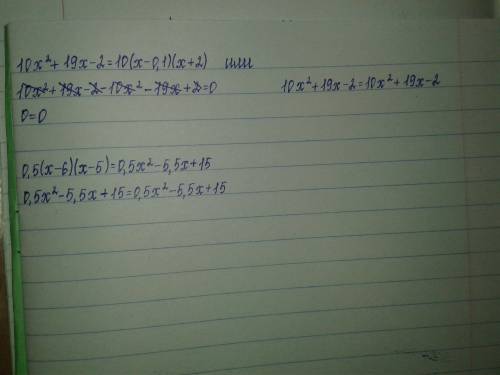 10x²+19x-2=10(x-0,1)(x+2) или
10x²+19x-2-10x²-19x+2=0 10x²+19x-2=10x²+19x-2
0=0
0,5(x-6)(x-5)=0,5x²-5,5x+15
0,5x²-5,5x+15=0,5x²-5,5x+15